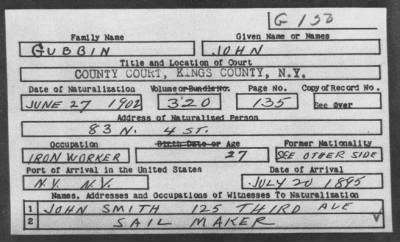 G 150
Family Name Given Name or Names
GUBBIN JOHN
Title and Location of Court
COUNTY COURT, KINGS COUNTY, N.Y.
Date of Naturalization Volume or Bundle No. Page No. Copy of Record No.
JUNE 27 1902 320 135 See Over
Address of Naturalized Person
83 N. 4 ST.
Occupation Birth Date or Age Former Nationality
IRON WORKER 27 SEE OTHER SIDE
Port of Arrival in the United States Date of Arrival
N.Y. N.Y. JULY 20 1895
Names, Addresses and Occupations of Witnesses To Naturalization
1 JOHN SMITH 125 THIRD AVE
2 SAIL MAKER